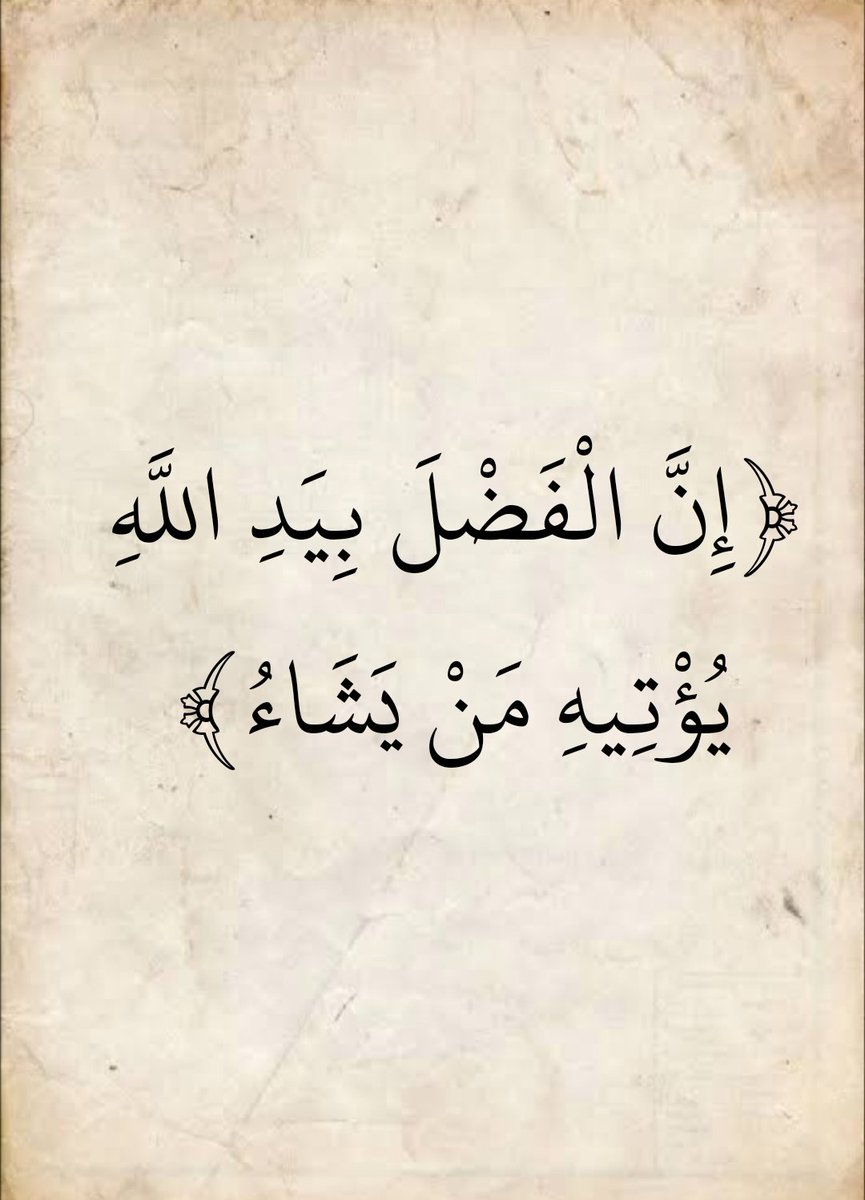 ﴿إِنَّ الْفَضْلَ بِيَدِ اللَّهِ
يُؤْتِيهِ مَنْ يَشَاءُ﴾